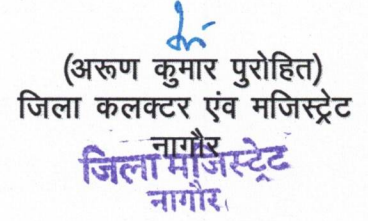 (अरूण कुमार पुरोहित)
जिला कलक्टर एंव मजिस्ट्रेट
नागौर
जिला मजिस्ट्रेट
नागौर।